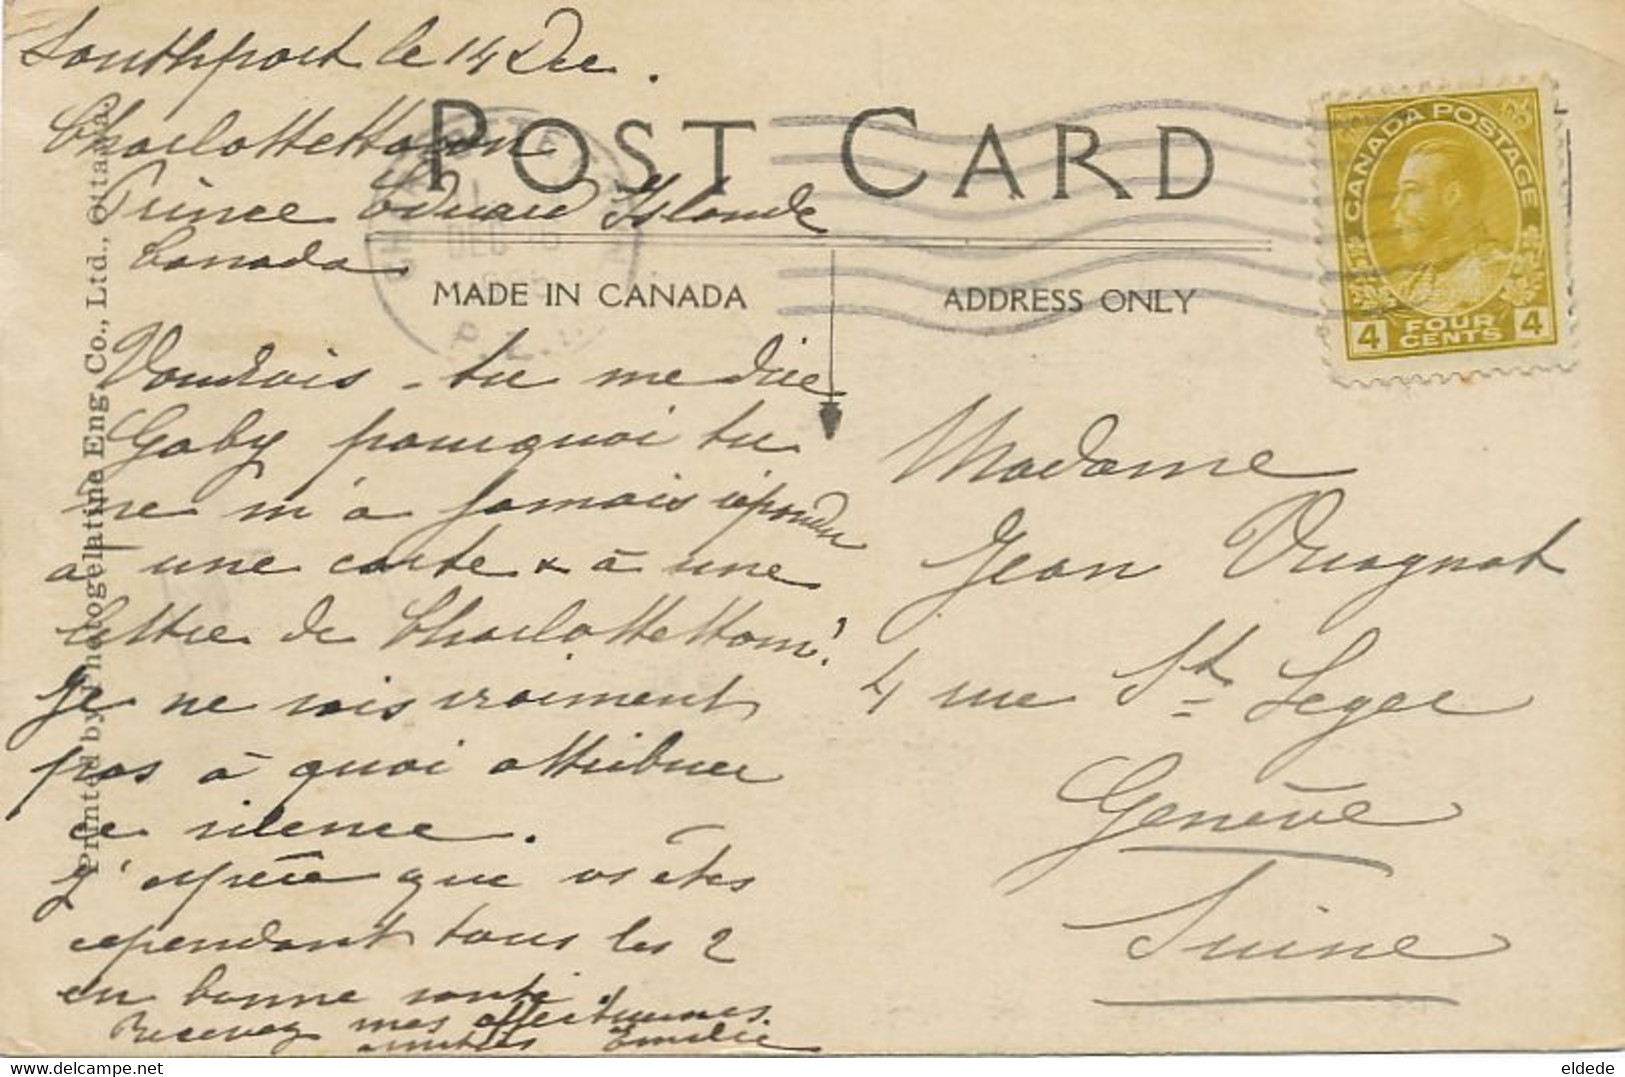 Southport le 14 Déc.
Charlottetown
Prince Edward Islande
Canada
POST CARD
MADE IN CANADA
ADDRESS ONLY
CANADA POSTAGE
4 FOUR CENTS 4
DEC
P.E.I.
Printed by Photogelatine Eng. Co., Ltd., Ottawa.
Voudrais-tu me dire
Gaby pourquoi tu
ne m'a jamais répondu
à une carte & à une
lettre de Charlottetown?
Je ne vois vraiment
pas à quoi attribuer
ce silence.
J'espère que vs êtes
cependant tous les 2
en bonne santé.
Recevez mes affectueuses
amitiés Emilie
Madame
Jean Vuagnat
4 rue St Leger
Genève
Suisse
eldede